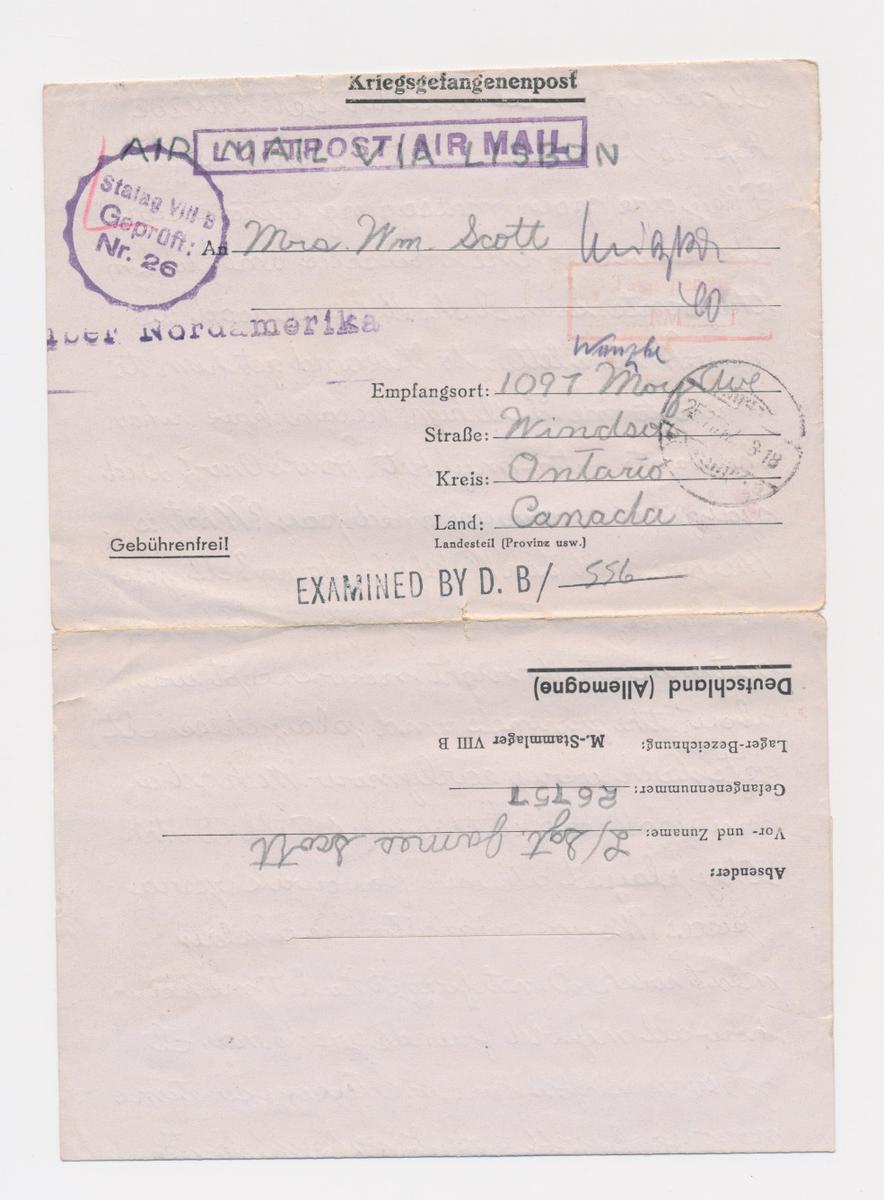 Kriegsgefangenenpost
LUFTPOST/AIR MAIL
AIR MAIL VIA LISBON
Stalag VIII B
Geprüft:
Nr. 26
An Mrs. Wm. Scott
über Nordamerika
Empfangsort: 1097 Moy Ave
Straße: Windsor
Kreis: Ontario
Land: Canada
Landesteil (Provinz usw.)
Gebührenfrei!
EXAMINED BY D. B/ 556
Deutschland (Allemagne)
Lager-Bezeichnung: M.-Stammlager VIII B
Gefangenennummer: 26757
Vor- und Zuname: L/Sgt. James Scott
Absender: